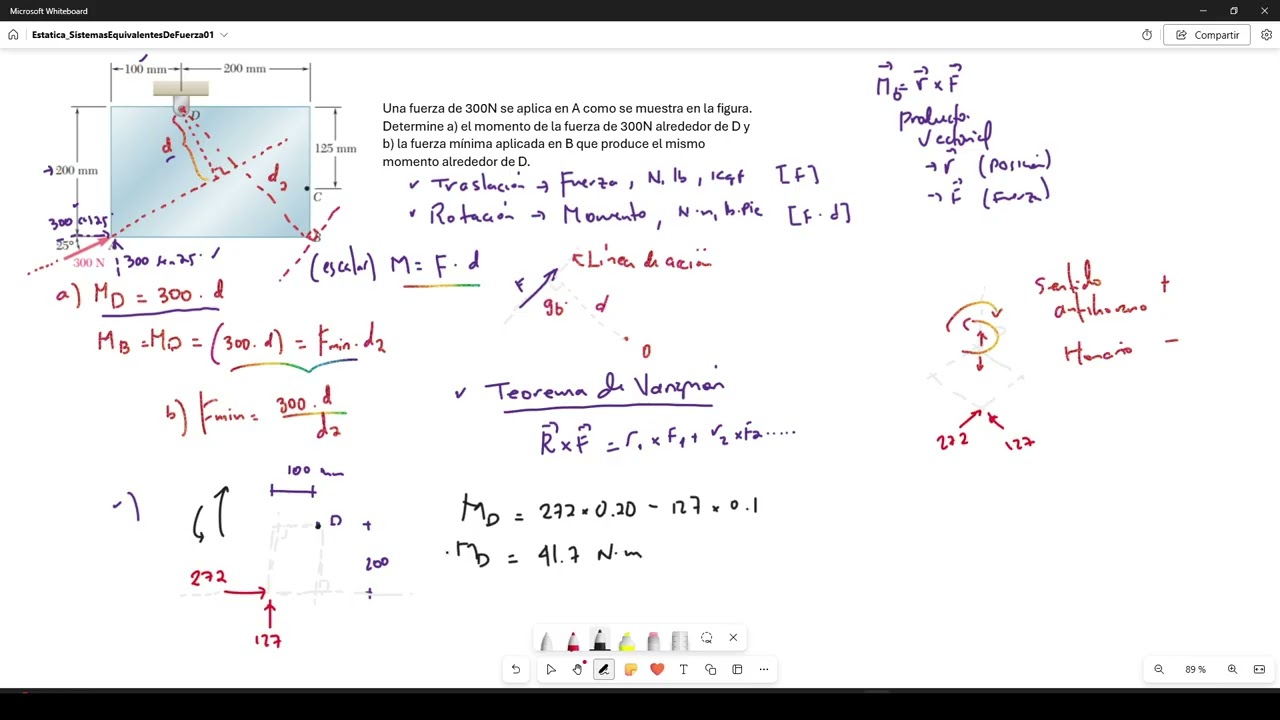 Microsoft Whiteboard
Estatica_SistemasEquivalentesDeFuerza01
Compartir
100 mm
200 mm
D
d
d2
200 mm
125 mm
C
B
300 cos 25
25°
300 N
300 sen 25
Una fuerza de 300N se aplica en A como se muestra en la figura.
Determine a) el momento de la fuerza de 300N alrededor de D y
b) la fuerza mínima aplicada en B que produce el mismo
momento alrededor de D.
✓ Traslación → Fuerza, N, lb, kgf [F]
✓ Rotación → Momento, N·m, lb·pie [F·d]
(escalar) M = F·d
F
Línea de acción
90°
d
O
a) MD = 300·d
MB = MD = (300·d) = Fmin·d2
b) Fmin = 300·d
d2
✓ Teorema de Varignon
R × F = r1 × F1 + r2 × F2 .....
100 mm
D
200
272
127
MD = 272 * 0.20 - 127 * 0.1
MD = 41.7 N·m
M0 = r × F
Producto
Vectorial
→ r (Posición)
→ F (Fuerza)
Sentido
antihorario +
Horario -
272
127
89 %